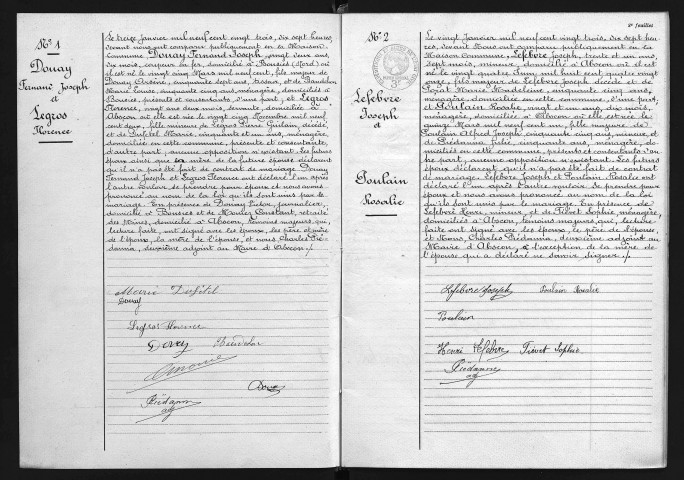 Nº 1
Douay
Fernand Joseph
et
Legros
Florence
Le treize janvier mil neuf cent vingt trois, dix sept heures,
devant nous ont comparu publiquement en la Maison
commune Douay Fernand Joseph, vingt deux ans,
dix mois, coupeur en fer, domicilié à Bousies (Nord) où
il est né le vingt cinq Mars mil neuf cent, fils majeur de
Douay Arsène, cinquante sept ans, tisseur, et de Baudelon
Marie Louise, cinquante cinq ans, ménagère, domiciliés à
Bousies, présents et consentants d'une part, et Legros
Florence, vingt ans deux mois, servante, domiciliée à
Abscon où elle est née le vingt cinq Novembre mil neuf
cent deux, fille mineure de Legros Pierre Guislain, décédé,
et de Marie, cinquante et un ans, ménagère,
domiciliée en cette commune, présente et consentante,
d'autre part; aucune opposition n'existant. Les futurs
époux ainsi que la mère de la future épouse déclarent
qu'il n'a pas été fait de contrat de mariage. Douay
Fernand Joseph et Legros Florence ont déclaré l'un après
l'autre vouloir se prendre pour époux et nous avons
prononcé au nom de la loi qu'ils sont unis par le
mariage. En présence de Victor, journalier,
domicilié à Bousies et de Constant, retraité
des Mines, domicilié à Abscon, témoins majeurs qui,
lecture faite, ont signé avec les époux, les père et mère
de l'époux, la mère de l'épouse, et nous Charles Prédanna,
deuxième adjoint au Maire d'Abscon ./.
Marie
Douay
Legros Florence
Douay
Prédanna
adj
2e feuillet
Nº 2
Lefebvre
Joseph
et
Poulain
Rosalie
Le vingt janvier mil neuf cent vingt trois, dix sept heures,
devant Nous ont comparu publiquement en la
Maison Commune, Lefebvre Joseph, trente et un ans,
sept mois, mineur, domicilié à Abscon où il est
né le vingt quatre Juin mil huit cent quatre vingt
onze, fils majeur de Lefebvre Joseph décédé et de
Marie Madeleine, cinquante cinq ans,
ménagère, domiciliée en cette commune, d'une part,
et Poulain Rosalie, vingt et un ans, dix mois,
ménagère, domiciliée à Abscon où elle est née le
Mars mil neuf cent un, fille majeure de
Poulain Alfred Joseph, cinquante cinq ans, mineur, et
de Prédanna cinquante ans, ménagère, domiciliés
en cette commune, présents et consentants d'autre
part, aucune opposition n'existant. Les futurs
époux déclarent qu'il n'a pas été fait de contrat
de mariage. Lefebvre Joseph et Poulain Rosalie ont
déclaré l'un après l'autre vouloir se prendre pour
époux et nous avons prononcé au nom de la loi
qu'ils sont unis par le mariage. En présence de
Lefebvre Henri, mineur, et de Fiévet Sophie, ménagère,
domiciliés à Abscon, témoins majeurs qui, lecture
faite ont signé avec les époux, le père de l'épouse,
et Nous, Charles Prédanna, deuxième adjoint au
Maire d'Abscon, à l'exception de la mère de
l'épouse qui a déclaré ne savoir signer ./.
Lefebvre Joseph Poulain Rosalie
Poulain
Henri Lefebvre Fiévet Sophie
Prédanna
adj